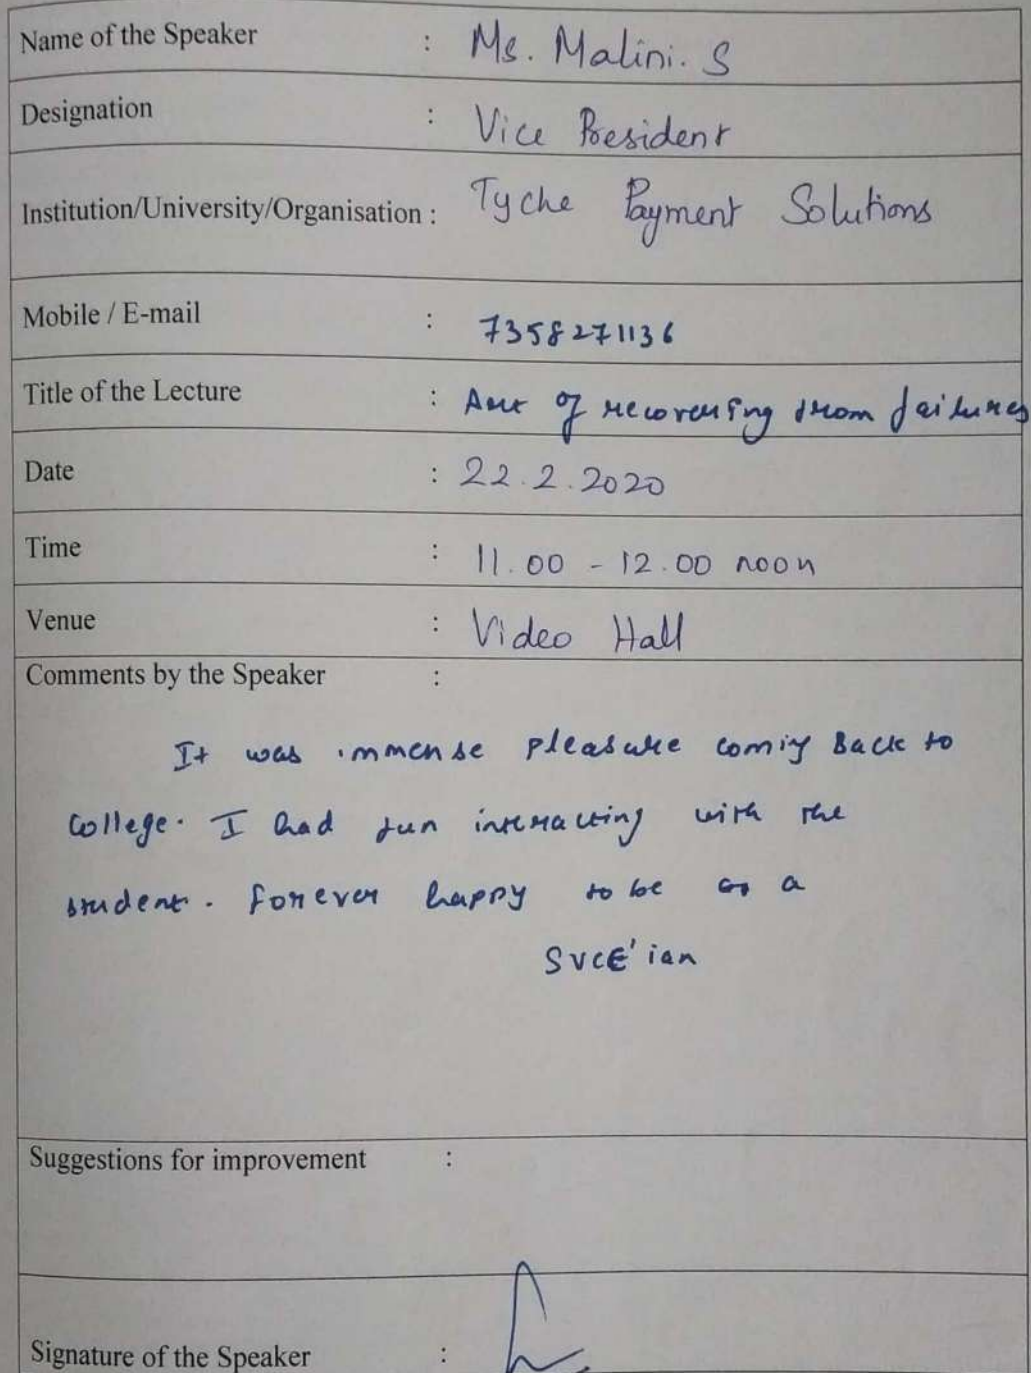 Name of the Speaker : Ms. Malini. S
Designation : Vice President
Institution/University/Organisation : Tyche Payment Solutions
Mobile / E-mail : 7358271136
Title of the Lecture : Art of recovering from failures
Date : 22.2.2020
Time : 11.00 - 12.00 noon
Venue : Video Hall
Comments by the Speaker :
It was immense pleasure coming Back to
College. I had fun interacting with the
student. forever happy to be as a
SVCE'ian
Suggestions for improvement :
Signature of the Speaker :